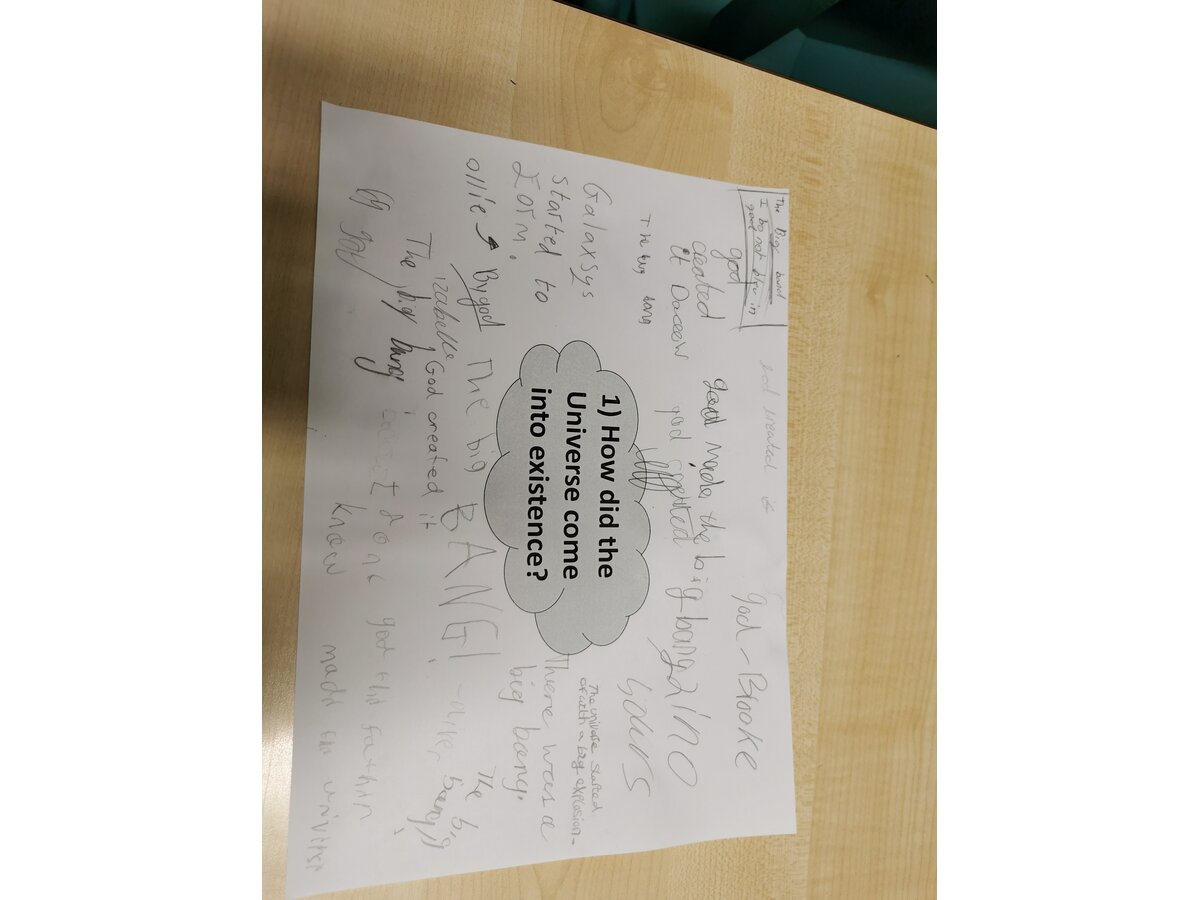 The Big band
I do not blev in
god
god created it
god - Brooke
god
created
it Daceow
god made the big bang
god created
dino
sours
The big bang
Galaxsys
started to
form.
ollie
1) How did the
Universe come
into existence?
The universe started
of with a big explosion.
There was a
big bang.
By god
izabelle
The big
BANG!
The big
bang
God created it
The big bang
god the fathir
made the univirse
know